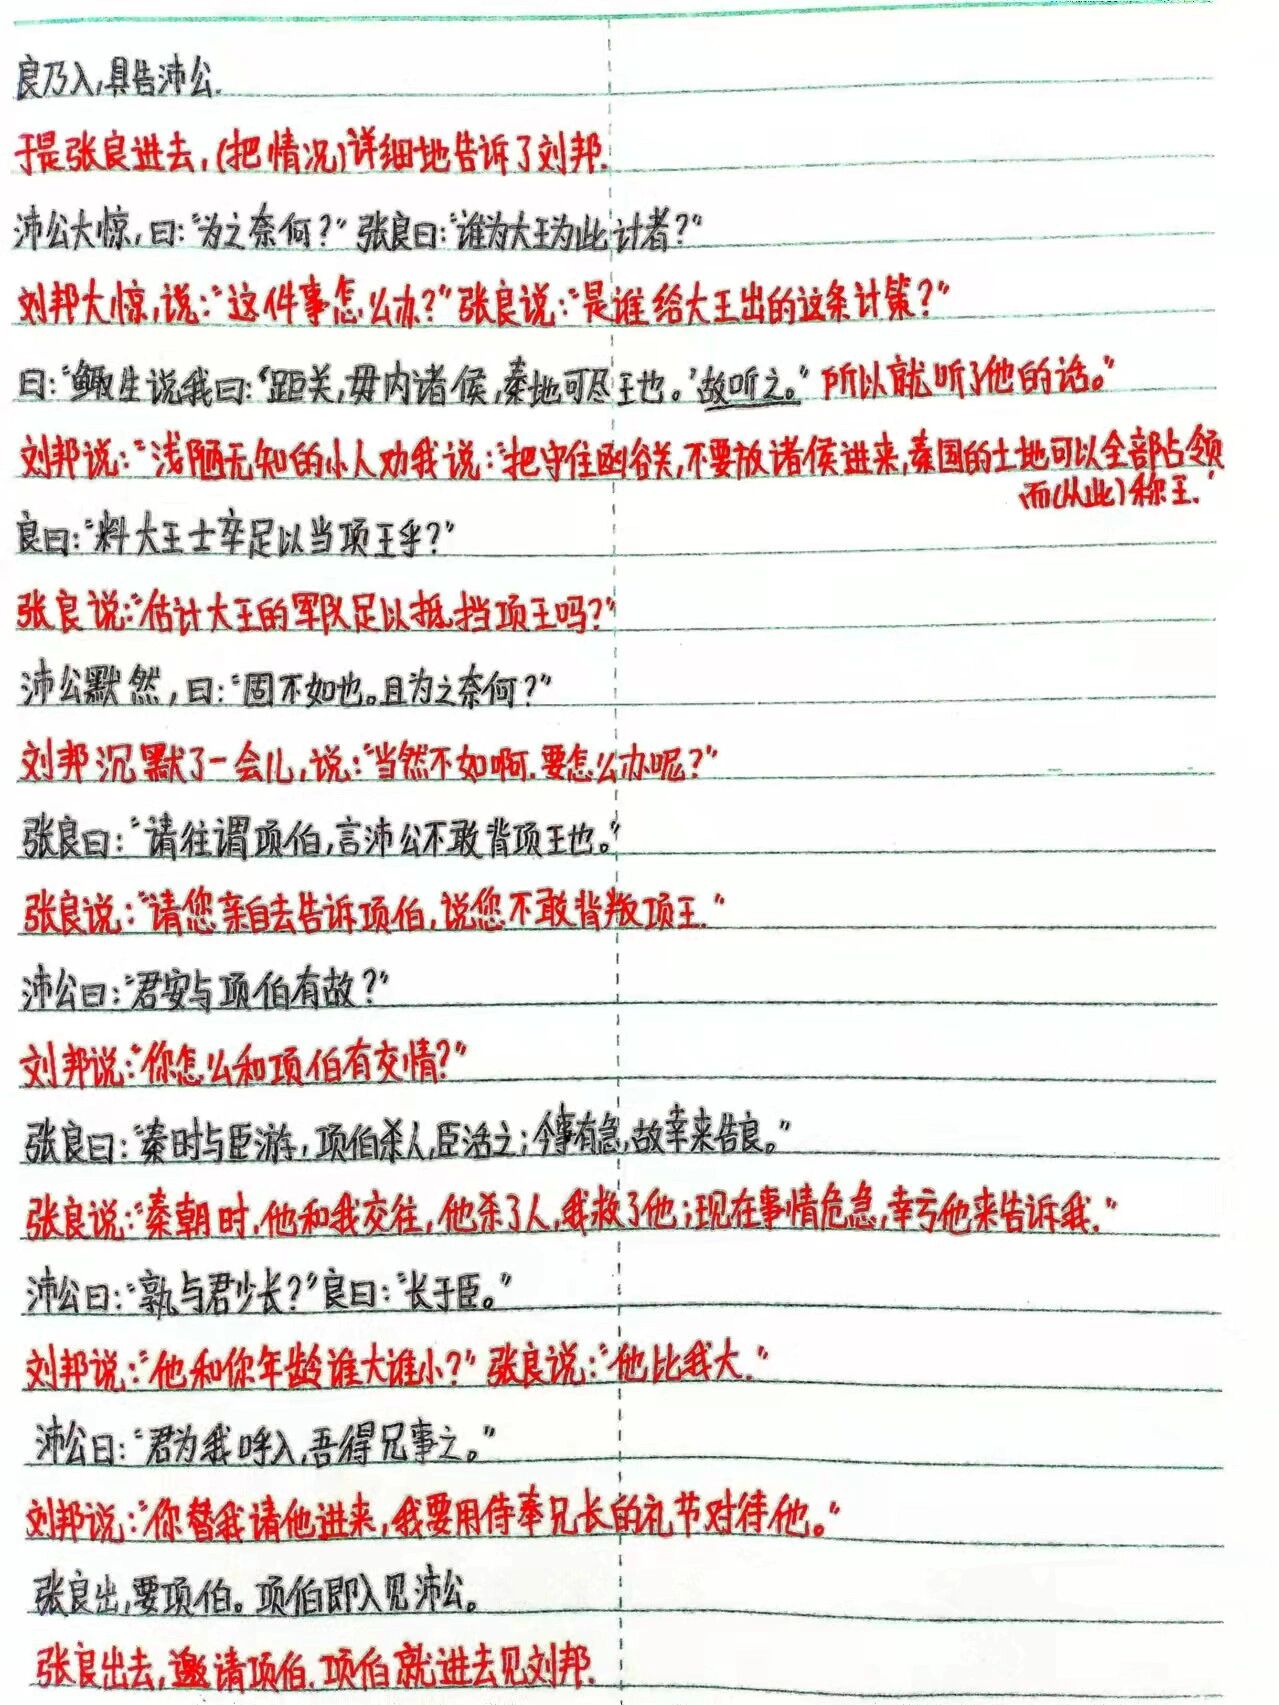 良乃入,具告沛公.
于是张良进去,(把情况)详细地告诉了刘邦.
沛公大惊,曰:“为之奈何?”张良曰:“谁为大王为此计者?”
刘邦大惊,说:“这件事怎么办?”张良说:“是谁给大王出的这条计策?”
曰:“鲰生说我曰:‘距关,毋内诸侯,秦地可尽王也。’故听之。”所以就听了他的话。”
刘邦说:“浅陋无知的小人劝我说:‘把守住函谷关,不要放诸侯进来,秦国的土地可以全部占领
而(从此)称王.’
良曰:“料大王士卒足以当项王乎?”
张良说:“估计大王的军队足以抵挡项王吗?”
沛公默然,曰:“固不如也。且为之奈何?”
刘邦沉默了一会儿,说:“当然不如啊.要怎么办呢?”
张良曰:“请往谓项伯,言沛公不敢背项王也。”
张良说:“请您亲自去告诉项伯,说您不敢背叛项王.”
沛公曰:“君安与项伯有故?”
刘邦说:“你怎么和项伯有交情?”
张良曰:“秦时与臣游,项伯杀人,臣活之;今事有急,故幸来告良。”
张良说:“秦朝时,他和我交往,他杀了人,我救了他;现在事情危急,幸亏他来告诉我.”
沛公曰:“孰与君少长?”良曰:“长于臣。”
刘邦说:“他和你年龄谁大谁小?”张良说:“他比我大.”
沛公曰:“君为我呼入,吾得兄事之。”
刘邦说:“你替我请他进来,我要用侍奉兄长的礼节对待他。”
张良出,要项伯。项伯即入见沛公。
张良出去,邀请项伯.项伯就进去见刘邦.